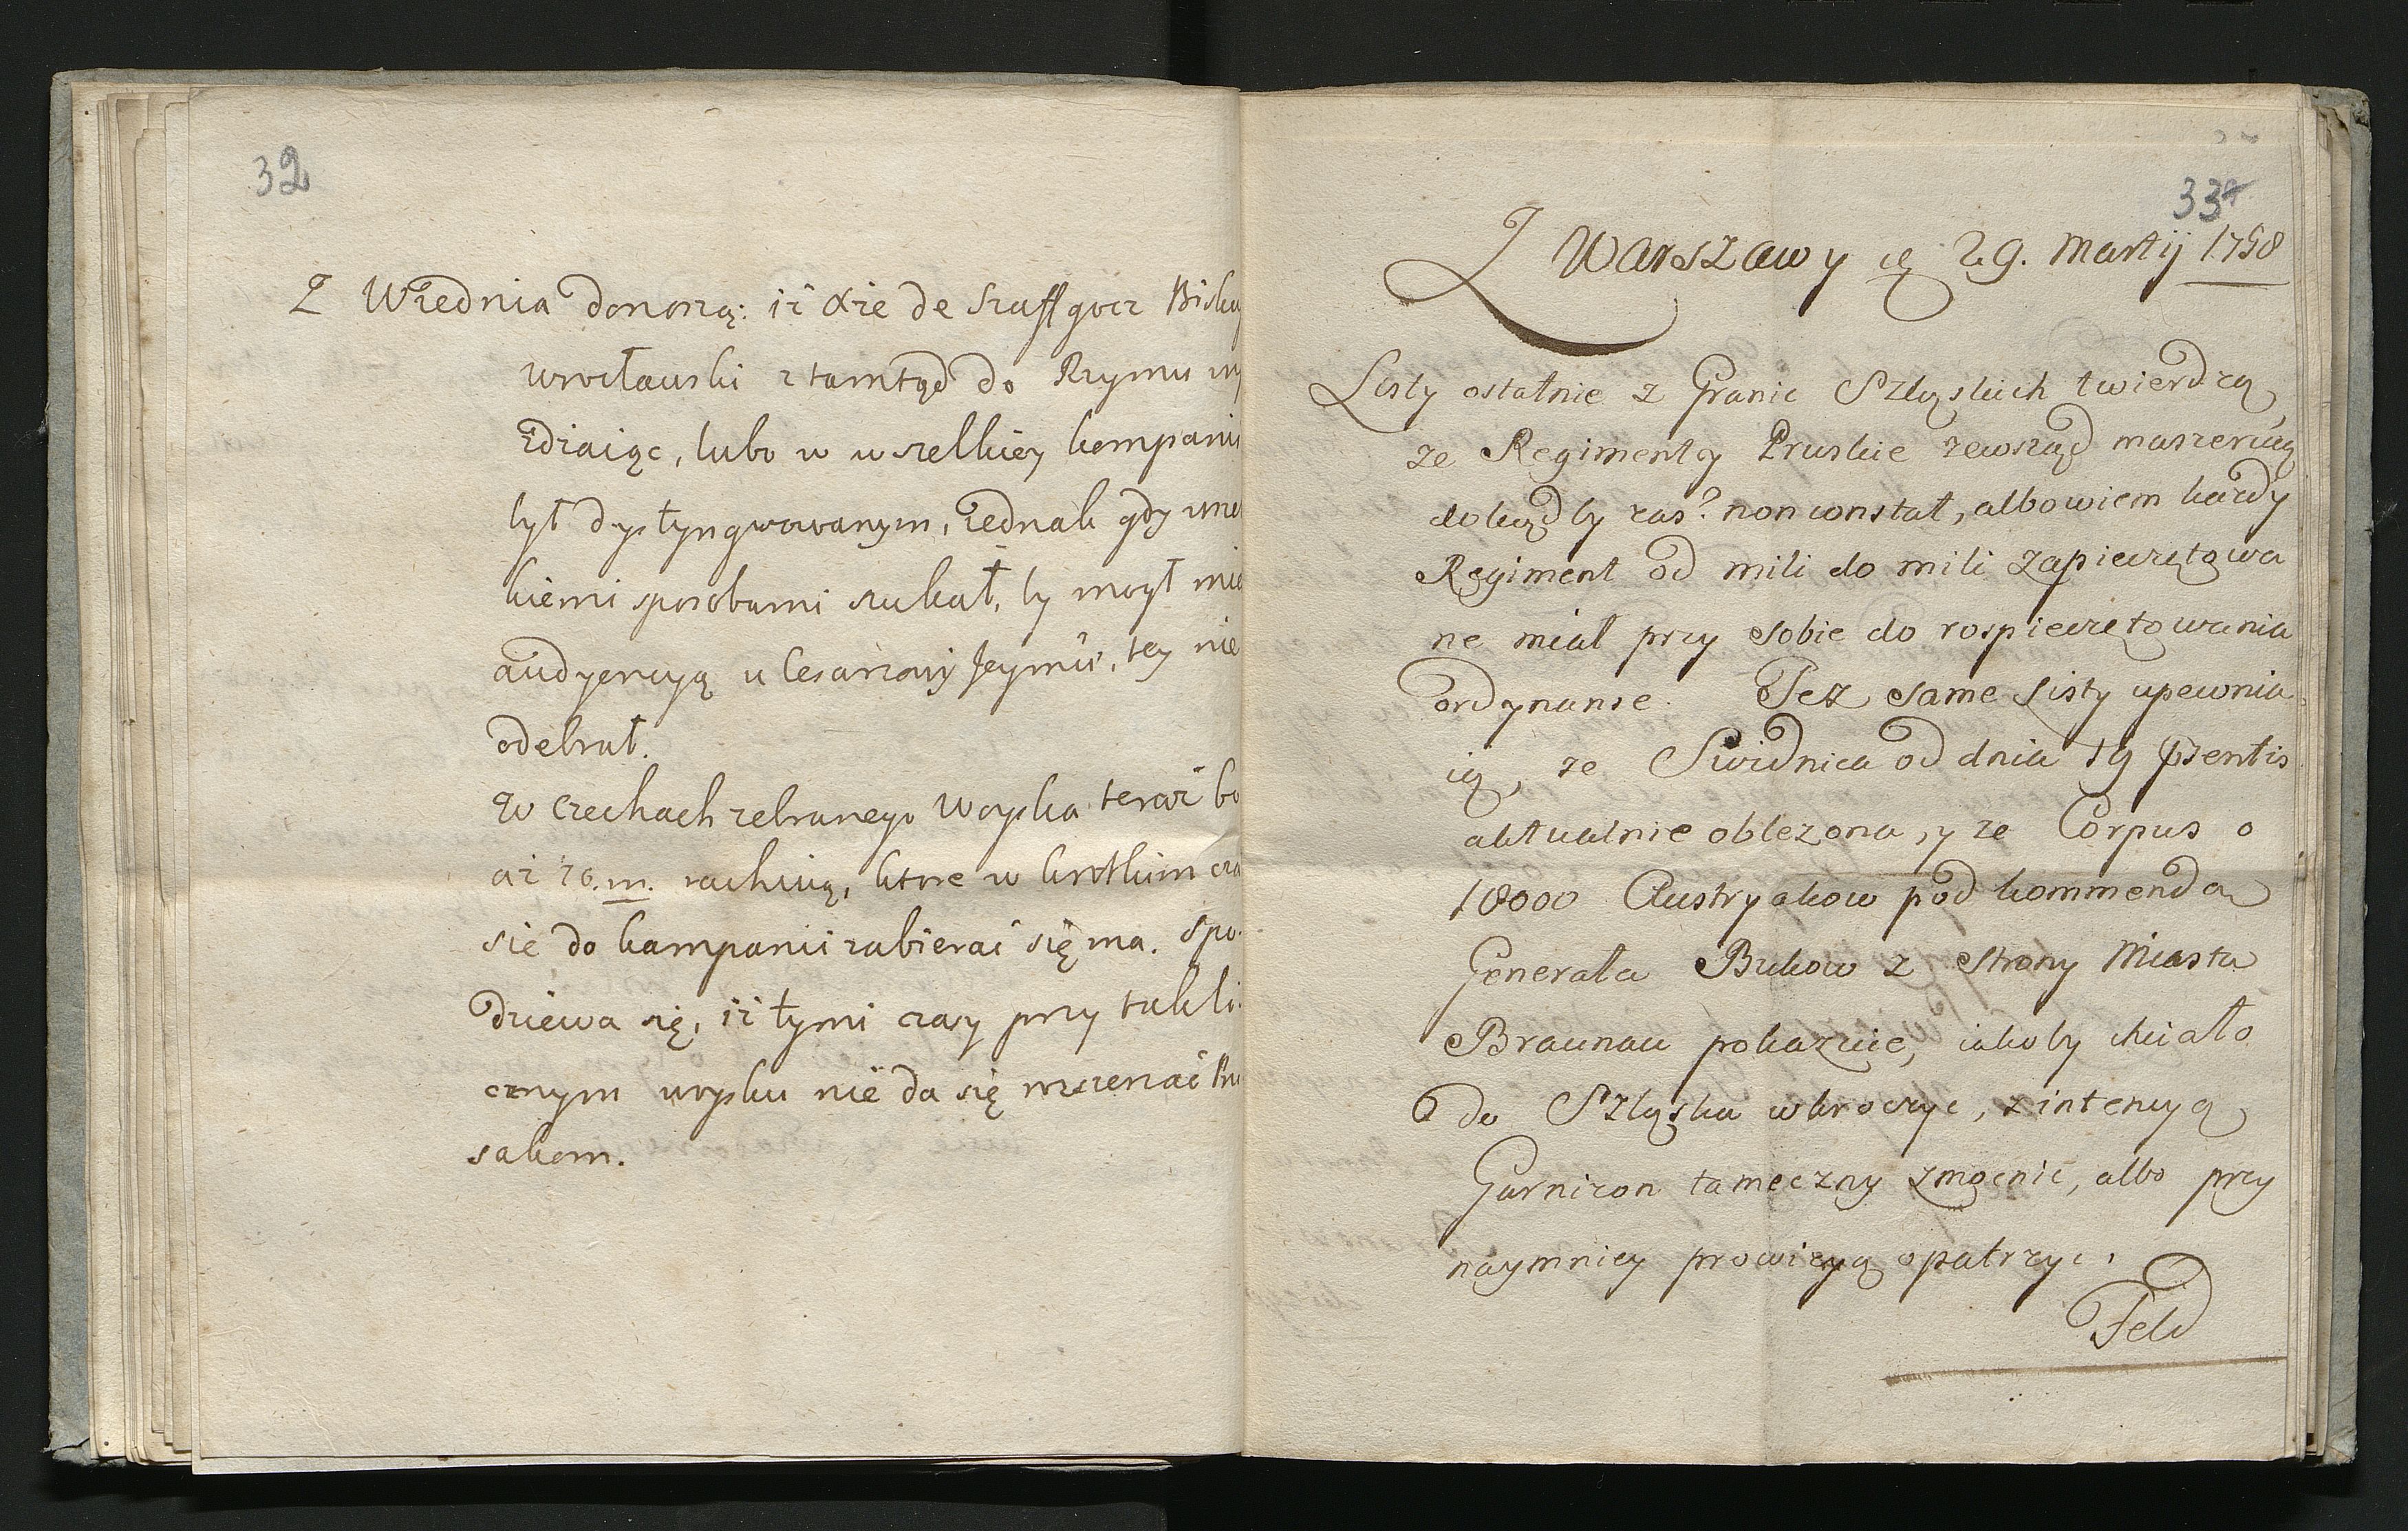 32
Z Wiednia donoszą: iż Xże de Szaffgocz Bisku
wrocławski z tamtąd do Rzymu wy
iżdżaiąc, lubo w wszelkiey kompanii
był dystyngwowanym, iednak gdy wne
kiemi sposobami szukał, by mogł mie
audyencyą u Cesarzowy Jeymći, tey nie
odebrał.
W Czechach zebranego Woyska teraż bo
aż 70.m. rachuią, ktore w krotkim cza
sie do kampanii zabierać się ma. Spo-
dziewa się, iż tymi czasy przy takli-
cznym woysku nie da się wszcząć Pru
sakom.
33
Z Warszawy 29. Martij 1758
Listy ostatnie z Granic Szląskich twierdzą,
ze Regimenty Pruskie zewsząd maszeruią
dokąd by zas? non constat, albowiem kazdy
Regiment od mili do mili zapieczętowa
ne miał przy sobie do rospieczętowania
ordynanse. Tez same Listy upewnia
ią, ze Swidnica od dnia 19 psentis
aktualnie oblezona, y ze Corpus o
18000 Austryakow pod kommendą
Generała Bukow z Strony Miasta
Braunau pokazuie, iakoby chciało
do Szląska wkroczyc, z intencyą
Garnizon tameczny zmocnic, albo przy
naymniey prowizyą opatrzyc.
Feld